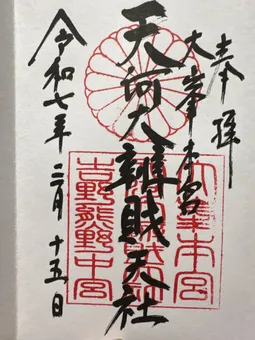 奉拝
大峯本宮
天河大辨財天社
令和七年二月十五日
大峯本宮
吉野熊野中宮